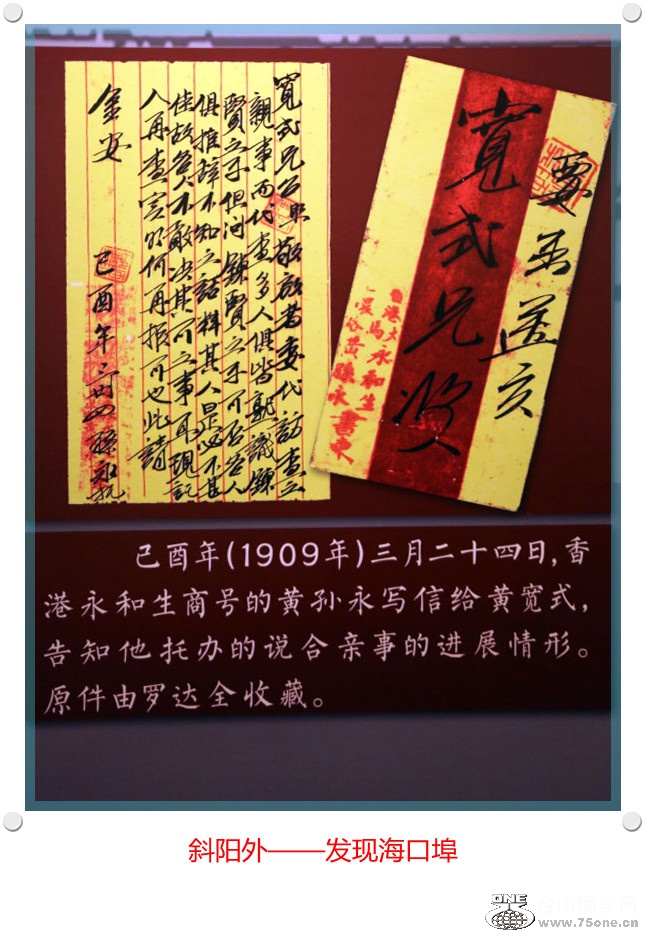 寬式兄 敬啟者委代訪查之
親事而代查多人俱皆熟識鍊
賢之子但问鍊賢之子可否答人
俱推辞不知之話料其人是必不甚
佳故 人不敢决其可之事耳現託
人再查实 何再报可也此請
金安
己酉年 孫永
要函送交
寬式兄收入
港 永和生
孫永書柬
己酉年(1909年)三月二十四日,香
港永和生商号的黄孙永写信给黄宽式,
告知他托办的说合亲事的进展情形。
原件由罗达全收藏。
斜阳外——发现海口埠
ONE
www.75one.cn